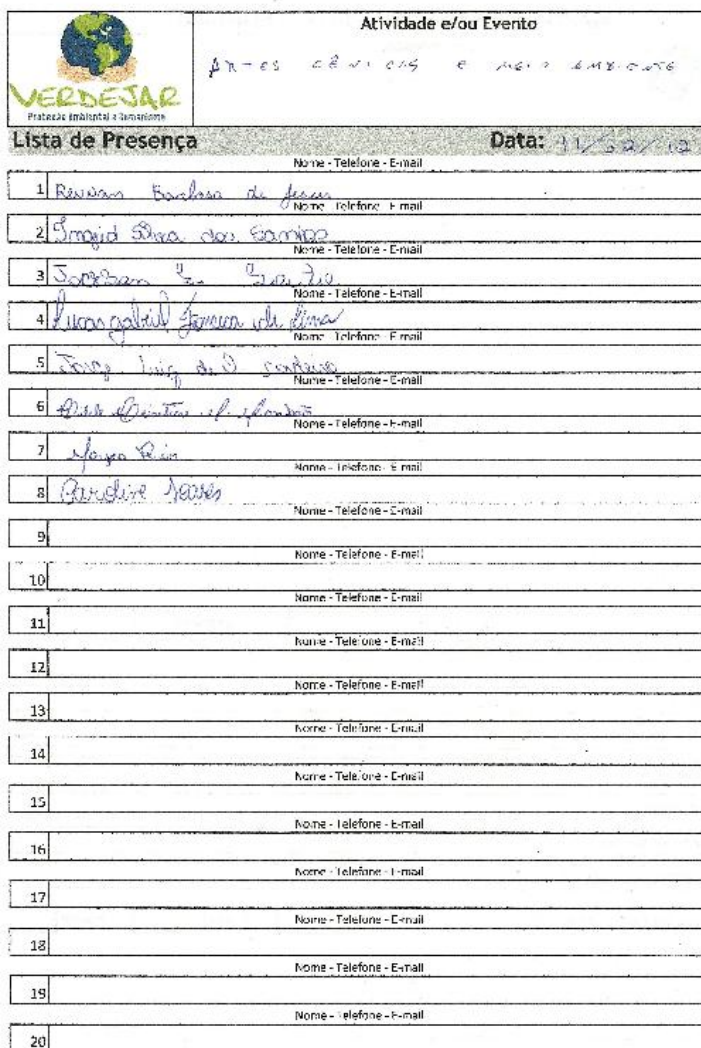 Atividade e/ou Evento
ARTES CÊNICAS E MEIO AMBIENTE
VERDEJAR
Proteção Ambiental e Humanismo
Lista de Presença Data:
Nome - Telefone - E-mail
1 Renan Barbosa de Jesus
Nome - Telefone - E-mail
2 Ingrid Silva dos Santos
Nome - Telefone - E-mail
3
Nome - Telefone - E-mail
4 Lucas gabriel Ferreira de lima
Nome - Telefone - E-mail
5 Jorge Luiz de O
Nome - Telefone - E-mail
6
Nome - Telefone - E-mail
7
Nome - Telefone - E-mail
8 Caroline Soares
Nome - Telefone - E-mail
9
Nome - Telefone - E-mail
10
Nome - Telefone - E-mail
11
Nome - Telefone - E-mail
12
Nome - Telefone - E-mail
13
Nome - Telefone - E-mail
14
Nome - Telefone - E-mail
15
Nome - Telefone - E-mail
16
Nome - Telefone - E-mail
17
Nome - Telefone - E-mail
18
Nome - Telefone - E-mail
19
Nome - Telefone - E-mail
20